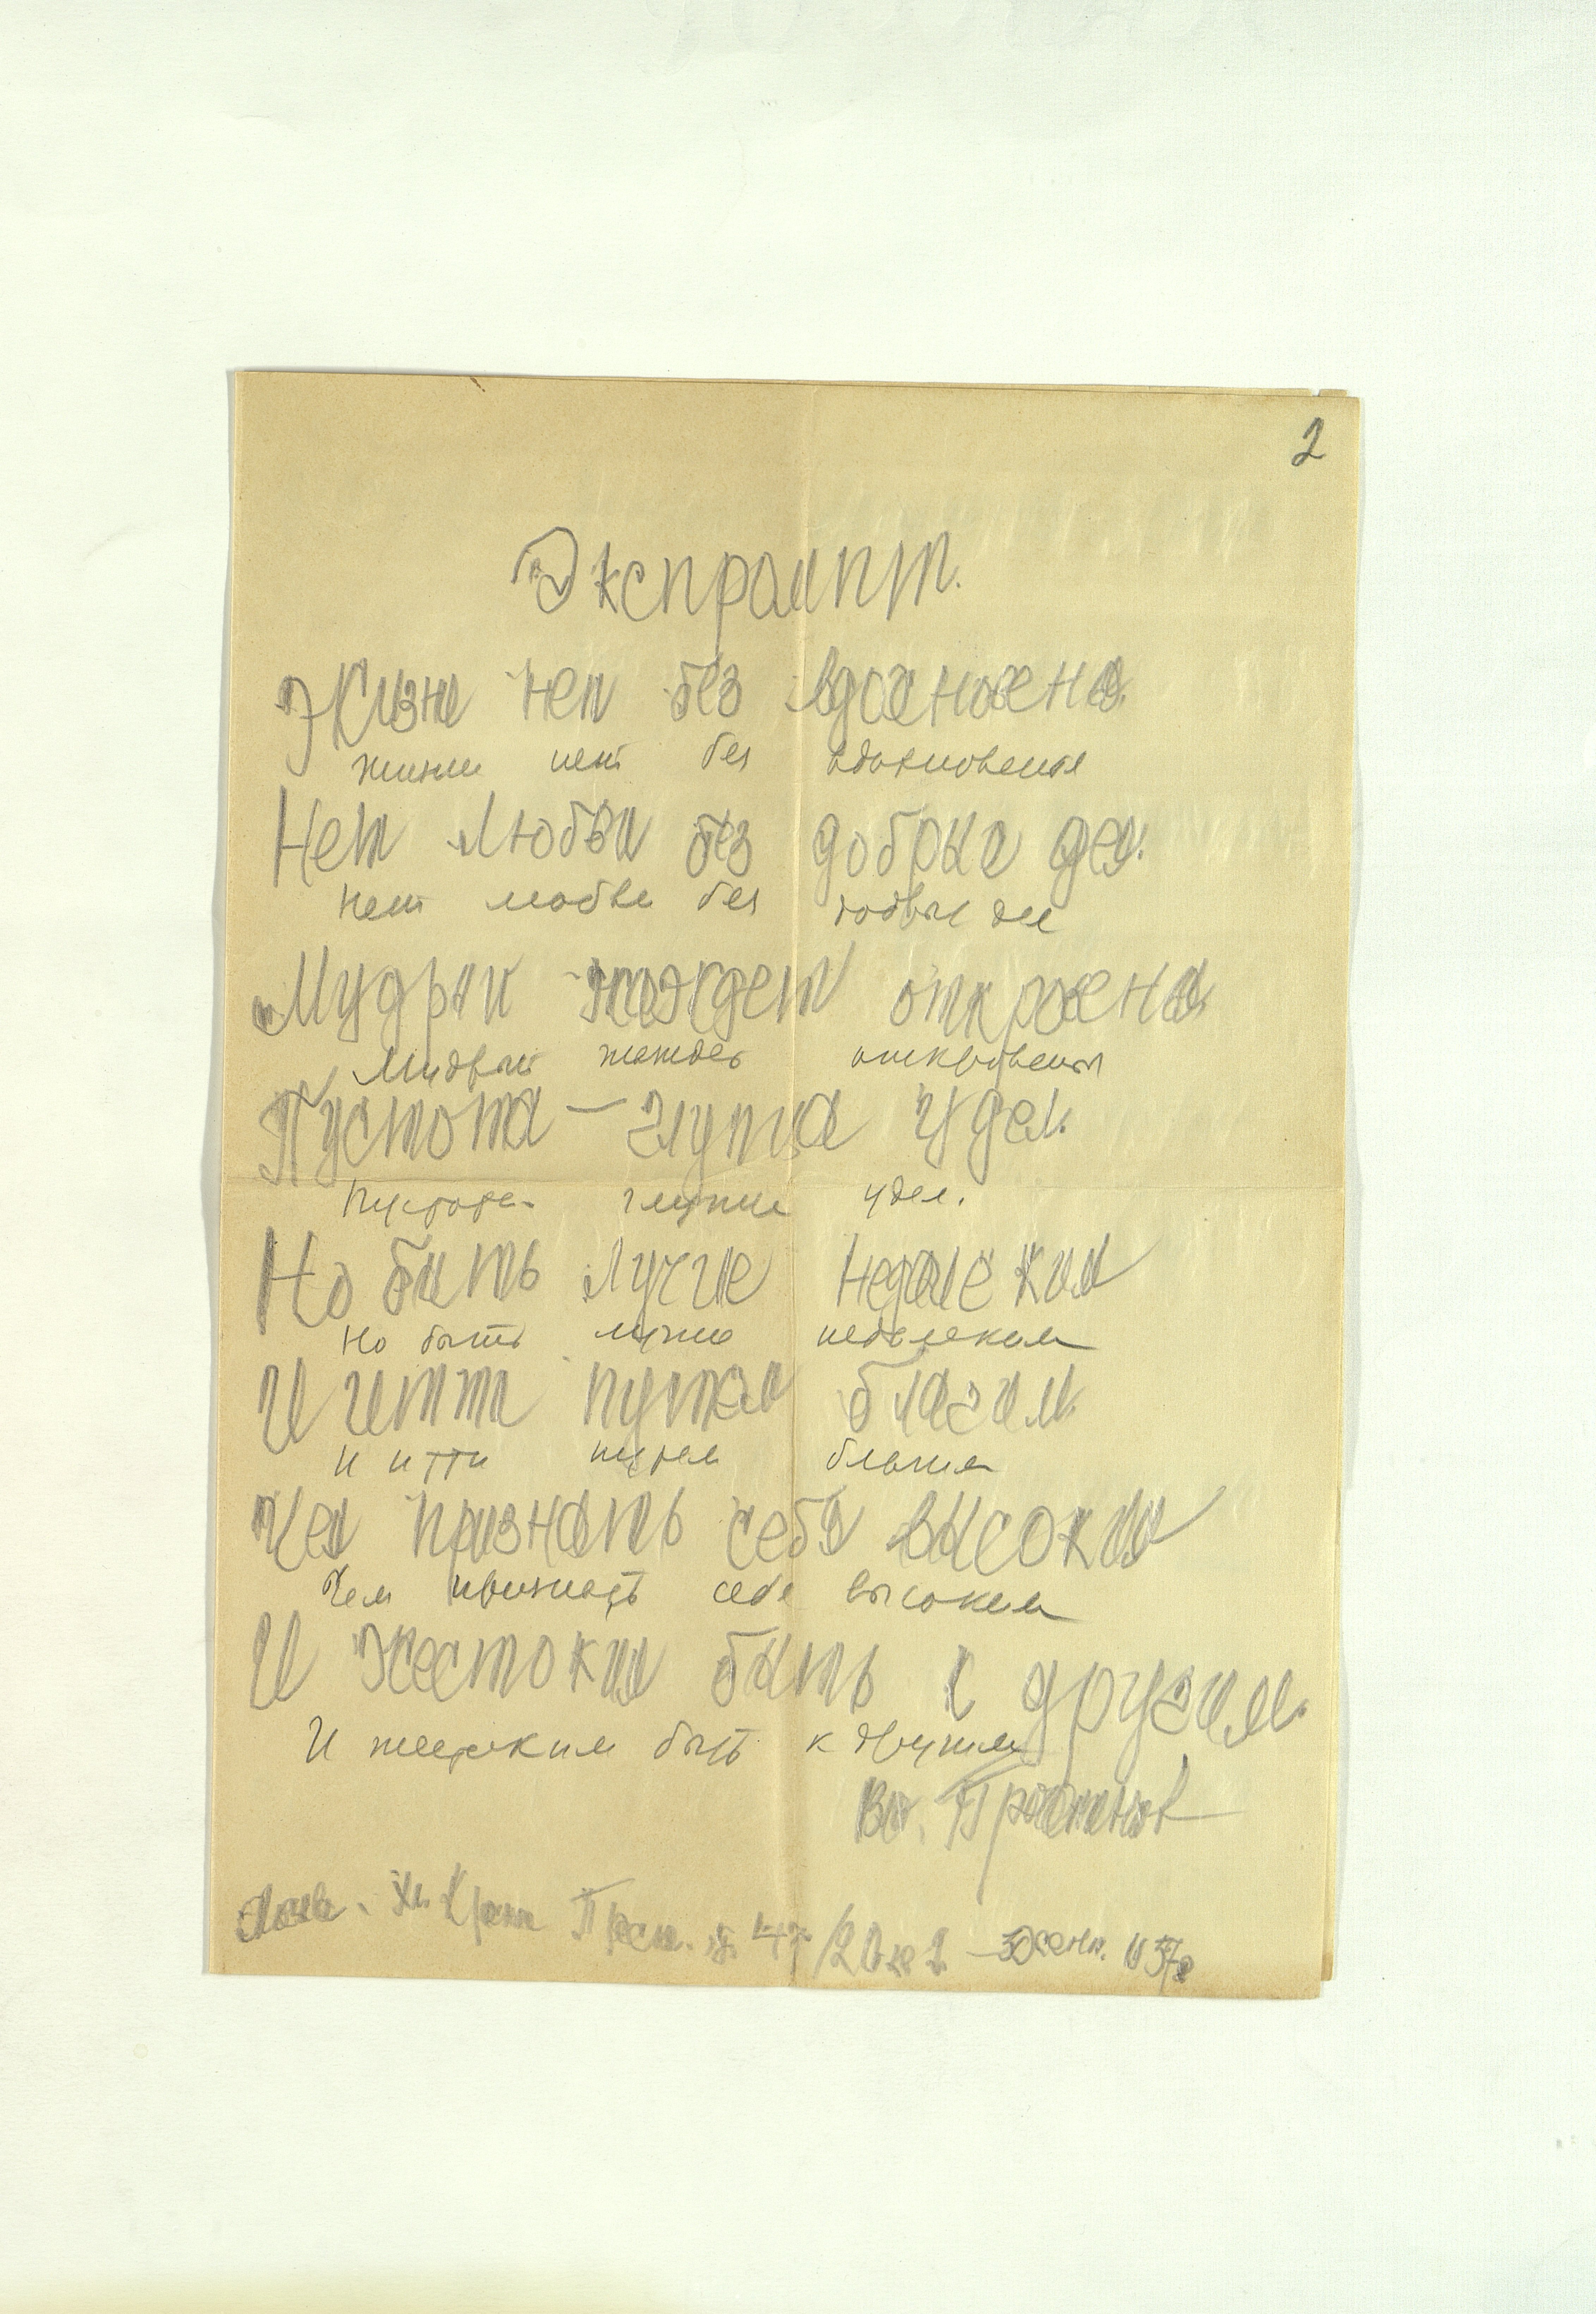 2
Экспромпт.
Жизни нет без вдохновенья
жизни нет без вдохновенья
Нет любви без добрых дел.
Нет любви без добрых дел
Мудрый жаждет откровенья
Мудрый жаждет откровенья
Пустота — глупца удел.
Пустота - глупца удел.
Но быть лучше недалеким
Но быть лучше недалеким
И итти путем благим.
И итти путем благим
Чем признать себя высоким
Чем признать себя высоким
И жестоким быть к другим.
И жестоким быть к другим
Вл.
Москва. Ул. Красн. Пресн. 57 г